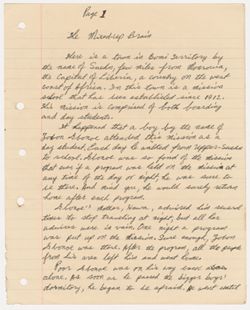 Page 1
The Mixed-up Brain
Here is a town in Bomi Territory by
the name of Suehn, few miles from Monrovia,
the Capital of Liberia, a country on the west
coast of Africa. In this town is a mission
school that has been established since 1912.
This mission is comprised of both boarding
and day students.
It happened that a boy by the name of
attended this mission as a
day student. Each day he walked from Upper-Suehn
to school. was so fond of the mission
that once if a program was held on the mission at
any time of the day or night he was sure to
be there. And mind you, he would surely return
home after each program.
mother, Hawa, advised him several
times to stop traveling at night, but all her
advices were in vain. One night a program
was put up on the mission. Sure enough,
was there. After the program, all the people
from his area left him and went home.
Poor was on his way home
alone. As soon as he passed the bigger boys'
dormitory, he began to be afraid. He went until